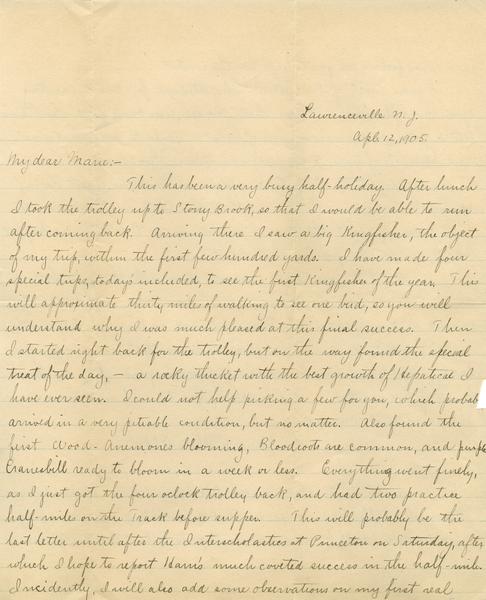 Lawrenceville N. J.
Apl. 12, 1905.
My dear Marie:-
This has been a very busy half-holiday. After lunch
I took the trolley up to Stony Brook, so that I would be able to run
after coming back. Arriving there I saw a big Kingfisher, the object
of my trip, within the first few hundred yards. I have made four
special trips, today's included, to see the first Kingfisher of the year. This
will approximate thirty miles of walking to see one bird, so you will
understand why I was much pleased at this final success. Then
I started right back for the trolley, but on the way found the special
treat of the day, — a rocky thicket with the best growth of Hepaticas I
have ever seen. I could not help picking a few for you, which probab
arrived in a very pitiable condition, but no matter. Also found the
first Wood-Anemones blooming, Bloodroots are common, and purple
Cranesbill ready to bloom in a week or less. Everything went finely,
as I just got the four oclock trolley back, and had two practice
half-miles on the Track before supper. This will probably be the
last letter until after the Interscholastics at Princeton on Saturday, after
which I hope to report Ham's much coveted success in the half-mile.
Incidently, I will also add some observations on my first real